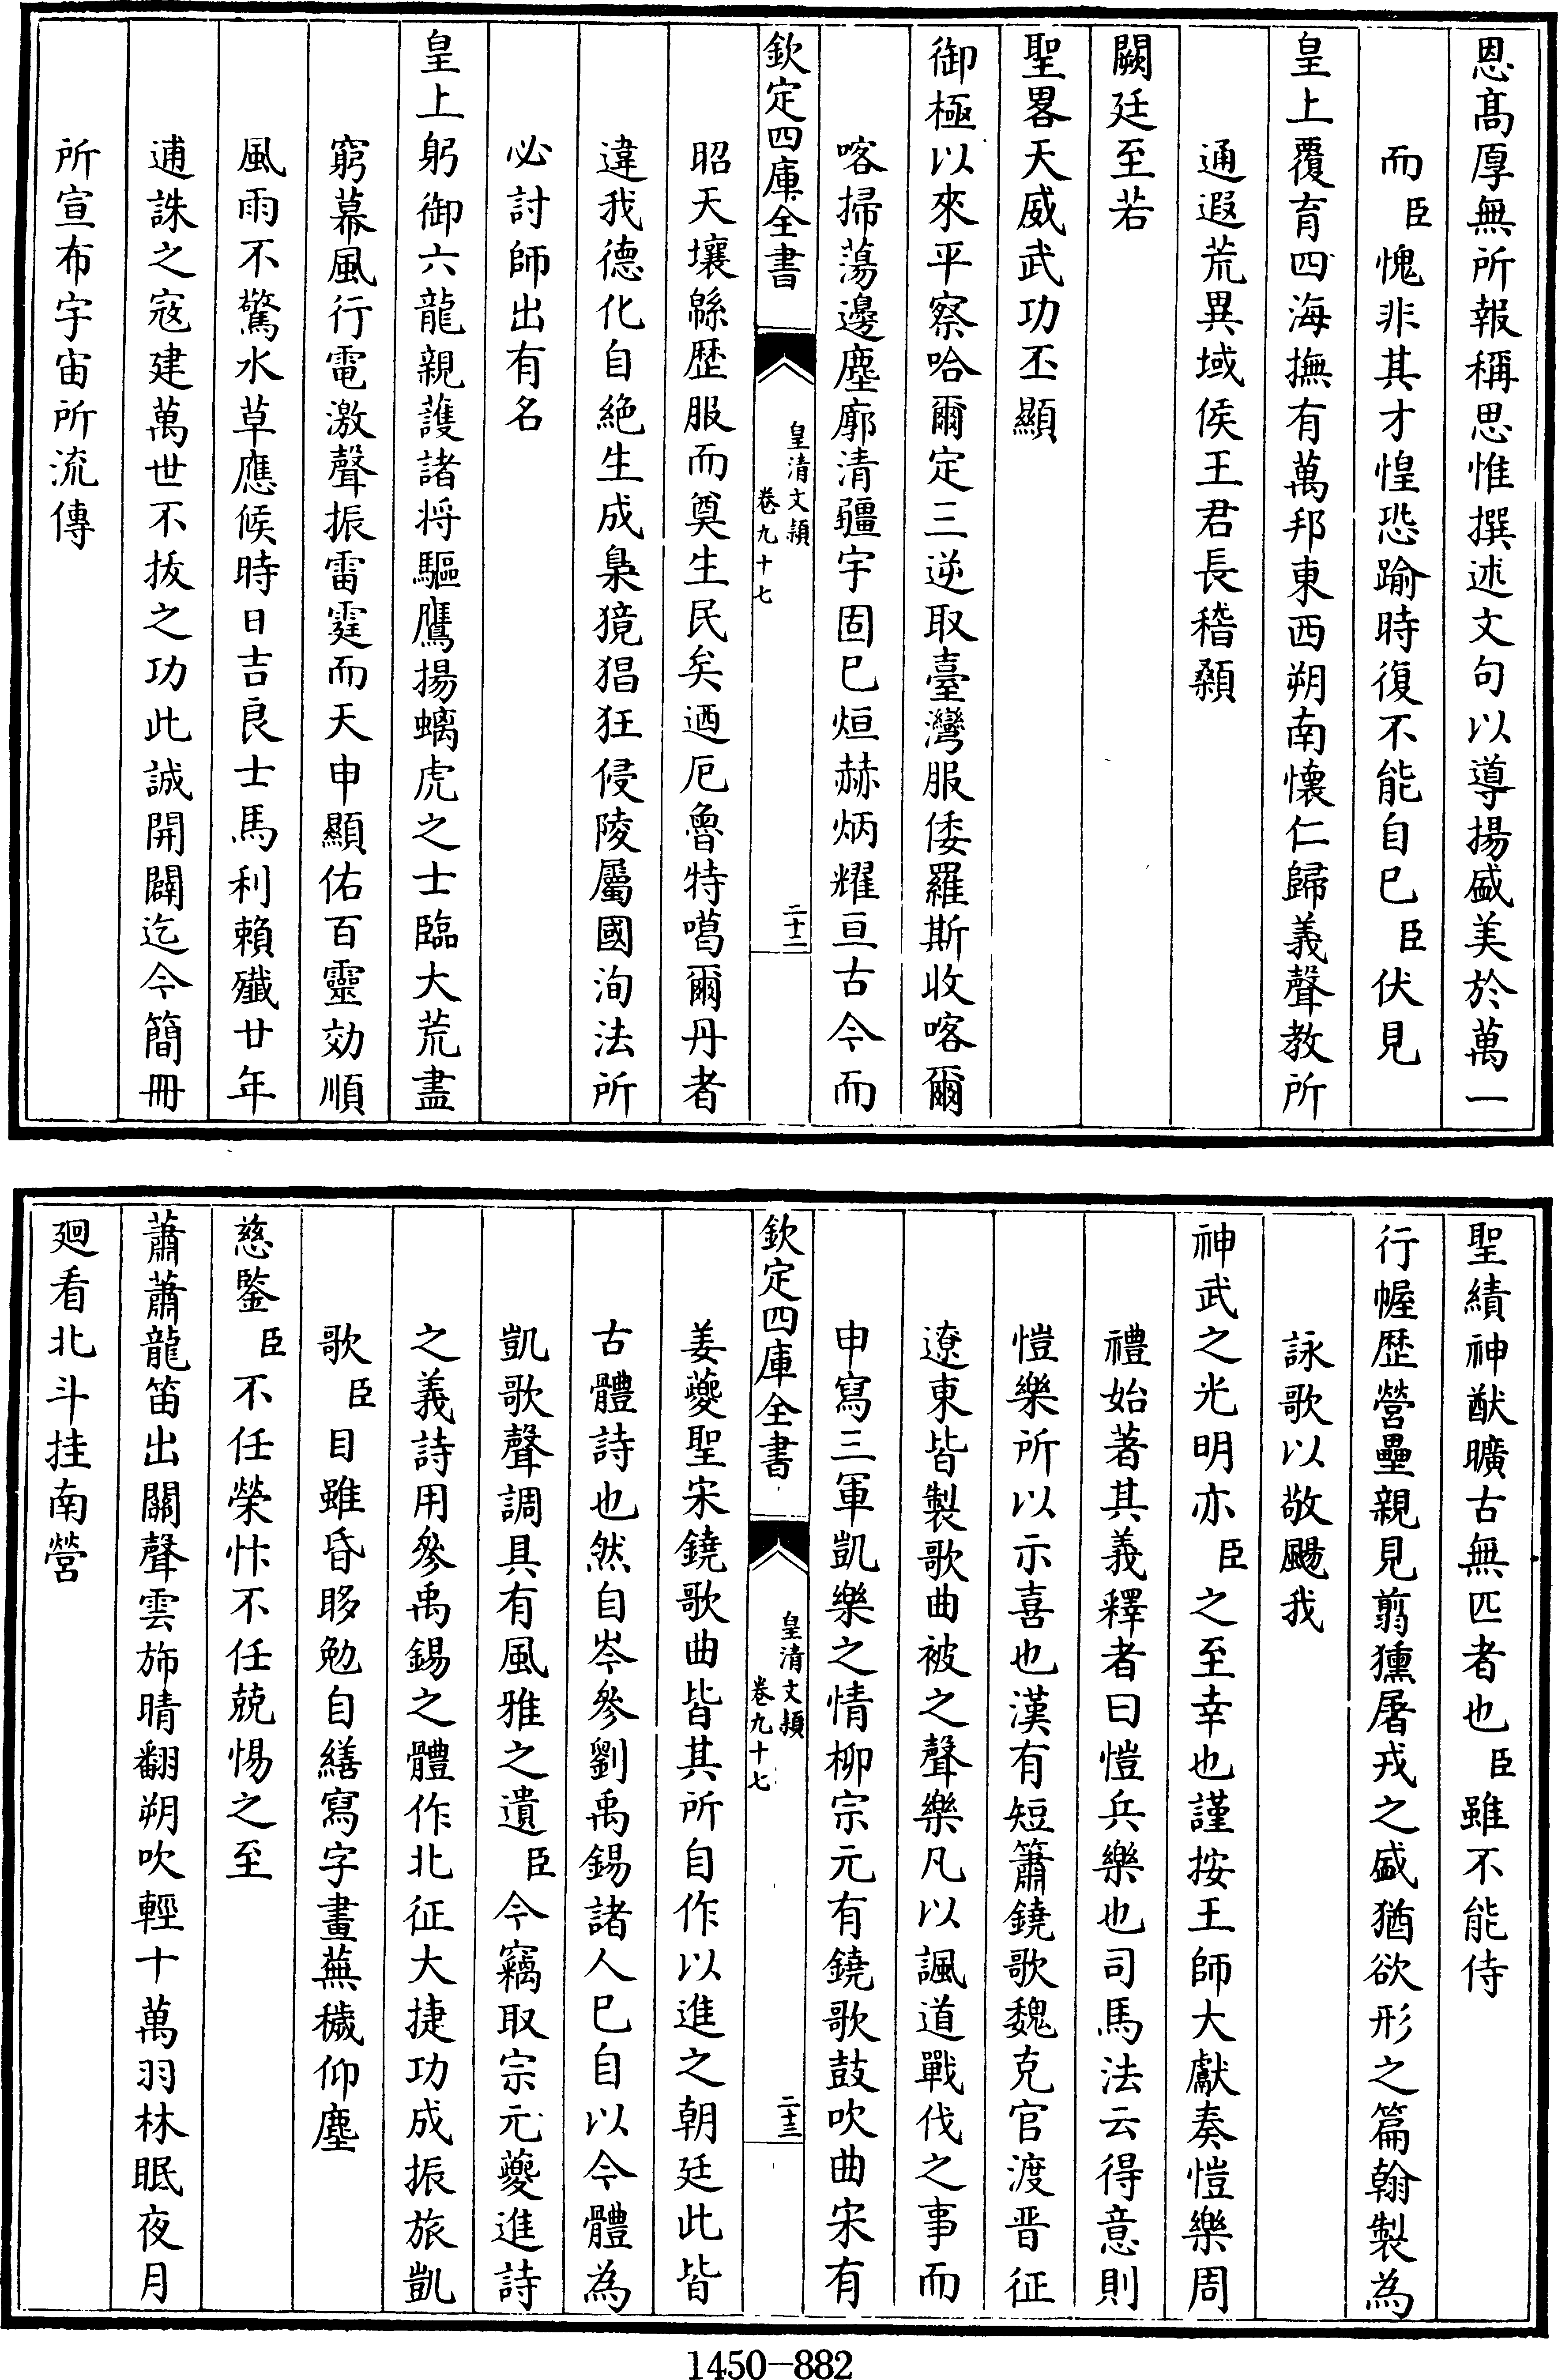 恩髙厚無所報稱思惟撰述文句以導揚盛美於萬一
而臣愧非其才惶恐踰時復不能自已臣伏見
皇上覆育四海撫有萬邦東西朔南懷仁歸義聲教所
通遐荒異域侯王君長稽顙
闕廷至若
聖畧天威武功丕顯
御極以來平察哈爾定三逆取臺灣服倭羅斯收喀爾
喀掃蕩邊塵廓清疆宇固已烜赫炳耀亘古今而
欽定四庫全書
皇清文頴
卷九十七
二十二
昭天壤緜歴服而奠生民矣迺厄魯特噶爾丹者
違我德化自絶生成梟獍猖狂侵陵屬國洵法所
必討師出有名
皇上躬御六龍親護諸将驅鷹揚螭虎之士臨大荒盡
窮幕風行電激聲振雷霆而天申顯佑百靈効順
風雨不驚水草應候時日吉良士馬利賴殱廿年
逋誅之宼建萬世不拔之功此誠開闢迄今簡冊
所宣布宇宙所流傳
聖績神猷曠古無匹者也臣雖不能侍
行幄歴營壘親見翦獯屠戎之盛猶欲形之篇翰製為
詠歌以敬颺我
神武之光明亦臣之至幸也謹按王師大獻奏愷樂周
禮始著其義釋者曰愷兵樂也司馬法云得意則
愷樂所以示喜也漢有短簫鐃歌魏克官渡晋征
遼東皆製歌曲被之聲樂凡以諷道戰伐之事而
申寫三軍凱樂之情柳宗元有鐃歌鼓吹曲宋有
欽定四庫全書
皇清文頴
卷九十七
二十三
姜夔聖宋鐃歌曲皆其所自作以進之朝廷此皆
古體詩也然自岑參劉禹錫諸人已自以今體為
凱歌聲調具有風雅之遺臣今竊取宗元夔進詩
之義詩用參禹錫之體作北征大捷功成振旅凱
歌臣目雖昏眵勉自繕寫字畫蕪穢仰塵
慈鍳臣不任榮忭不任兢惕之至
蕭蕭龍笛出關聲雲斾晴翻朔吹輕十萬羽林眠夜月
廻看北斗挂南營
1450-882